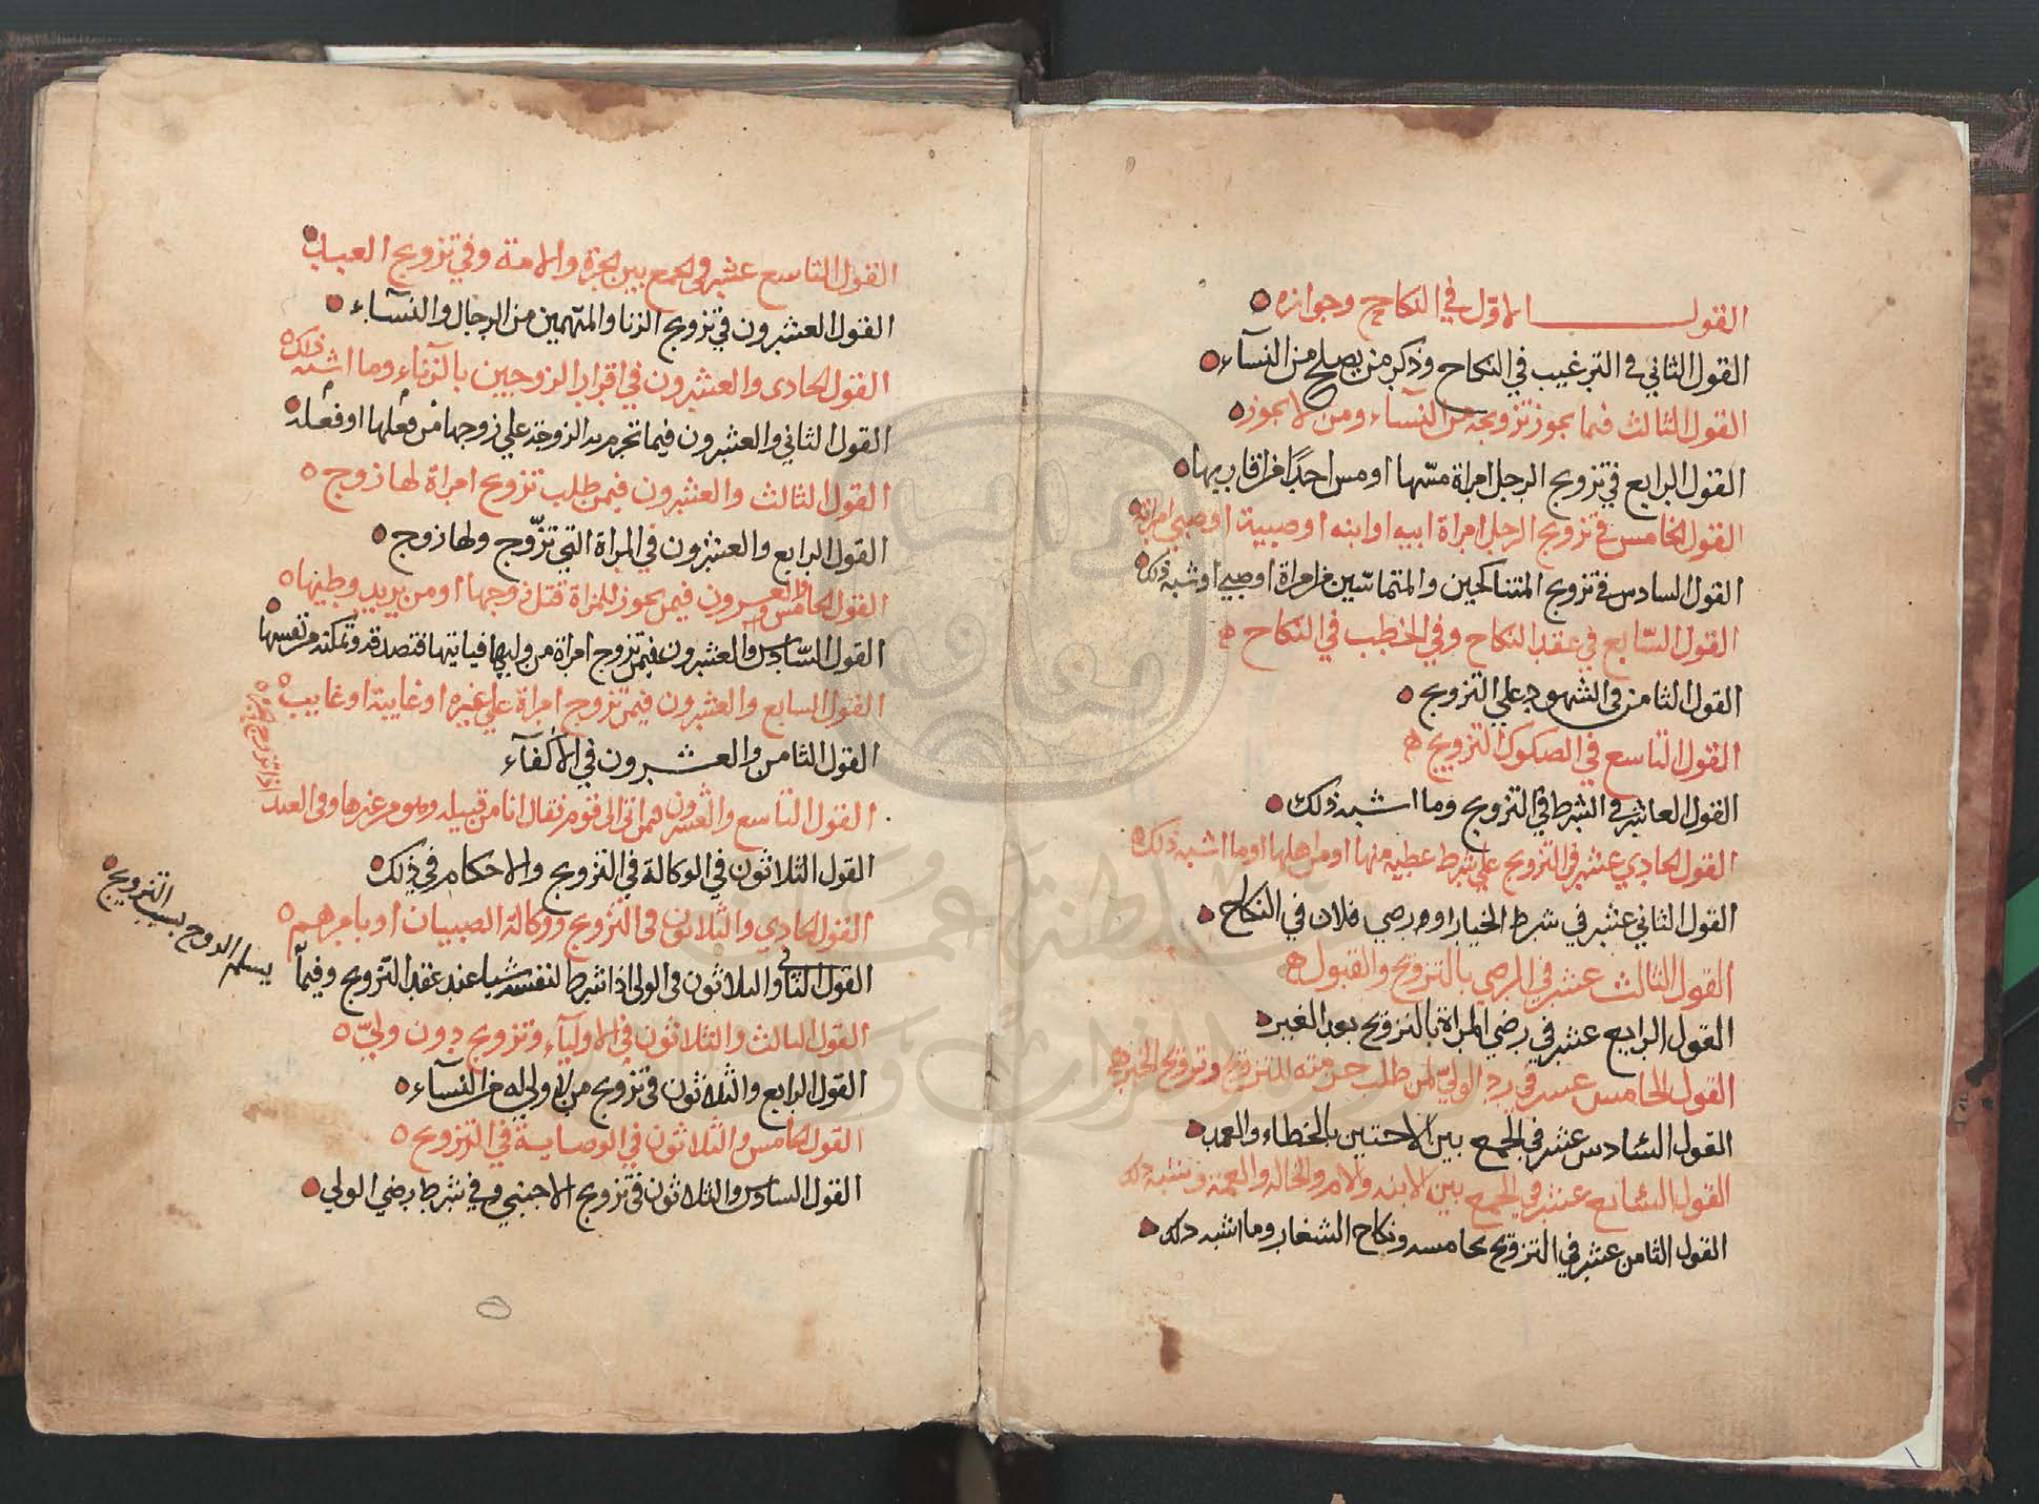 القول الاول في النكاح وجوازه
القول الثاني في الترغيب في النكاح وذكر من يصلح من النسآء
القول الثالث فيما يجوز تزويجه من النسآء ومن لا يجوز
القول الرابع في تزويج الرجل امراة مسّها او مس احدًا من اقاربها
القول الخامس في تزويج الرجل امراة ابيه او ابنه او صبية او صبي امراة
القول السادس في تزويج المتناكحين والمتماسّين من امراة او صبي او شبه ذلك
القول السّابع في عقد النكاح وفي الخطب في النكاح
القول الثامن في الشهود علي التزويج
القول التاسع في الصكوك التزويج
القول العاشر في الشرط في التزويج وما اشبه ذلك
القول الحادي عشر في التزويج علي شرط عطيه منها او من اهلها او ما اشبه ذلك
القول الثاني عشر في شرط الخيار او ورضي فلان في النكاح
القول الثالث عشر في الرضي بالتزويج والقبول
القول الرابع عشر في رضي المراة بالتزويج بعد الغير
القول الخامس عشر في رد الولي لمن طلب حرمته للتزويج وتزويج
القول السادس عشر في الجمع بين الاختين بالخطاء والعمد
القول السابع عشر في الجمع بين الابنه والام والخاله والعمة وشبه ذلك
القول الثامن عشر في التزويج بخامسه ونكاح الشغار وما اشبه ذلك
القول التاسع عشر في الجمع بين الحرة والامة وفي تزويج العبيد
القول العشرون في تزويج الزنا والمتهمين من الرجال والنسآء
القول الحادى والعشرون في اقرار الزوجين بالزناء وما اشبه ذلك
القول الثاني والعشرون فيما تحرم به الزوجة علي زوجها من فعلها او فعله
القول الثالث والعشرون فيمن طلب تزويج امراة لها زوج
القول الرابع والعشرون في المراة التي تزّوج ولها زوج
القول الخامس والعشرون فيمن يجوز للمراة قتل زوجها او من يريد وطيها
القول السّادس والعشرون فيمن تزوج امراة من وليها فياتيها فتصدقه وتمكنه من نفسها
القول السابع والعشرون فيمن تزوج امراة علي غيره او غايبة او غايب
اذا تزوج
القول الثامن والعشرون في الاكفآء
القول التاسع والعشرون فيمن اتى الى قوم فقال انا من قبيله وهو من غيرها وفى العبد
القول الثلاثون في الوكالة في التزويج والاحكام في ذلك
القول الحادي والثلاثون فى التزويج ووكالة الصبيان او بامرهم
القول الثاني والثلاثون فى الولى اذا شرط لنفسه شيا عند عقد التزويج وفيما
يسلم الزوج بسبب التزويج
القول الثالث والثلاثون في الاوليآء وتزويج بدون وليّ
القول الرابع والثلاثون في تزويج من لا ولي له من النسآء
القول الخامس والثلاثون في الوصاية في التزويج
القول السادس والثلاثون في تزويج الاجنبي وفي شرط رضي الولي
سلطنة عمان